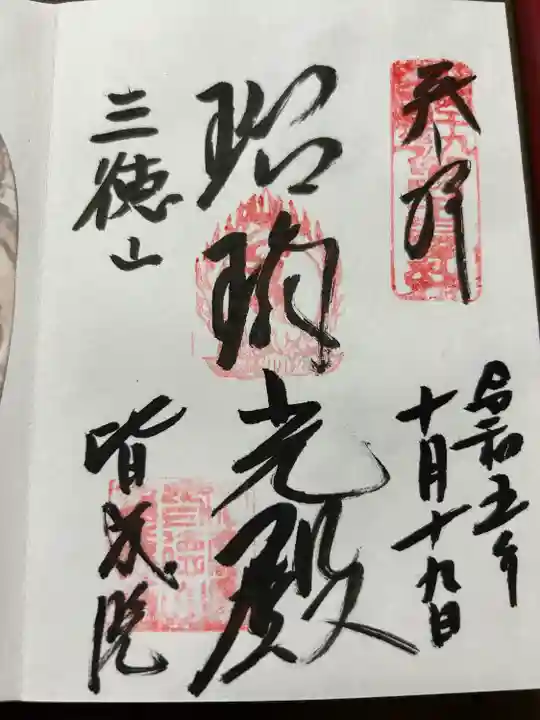 奉拝
令和五年
十月十九日
瑠璃光殿
三徳山
皆成院